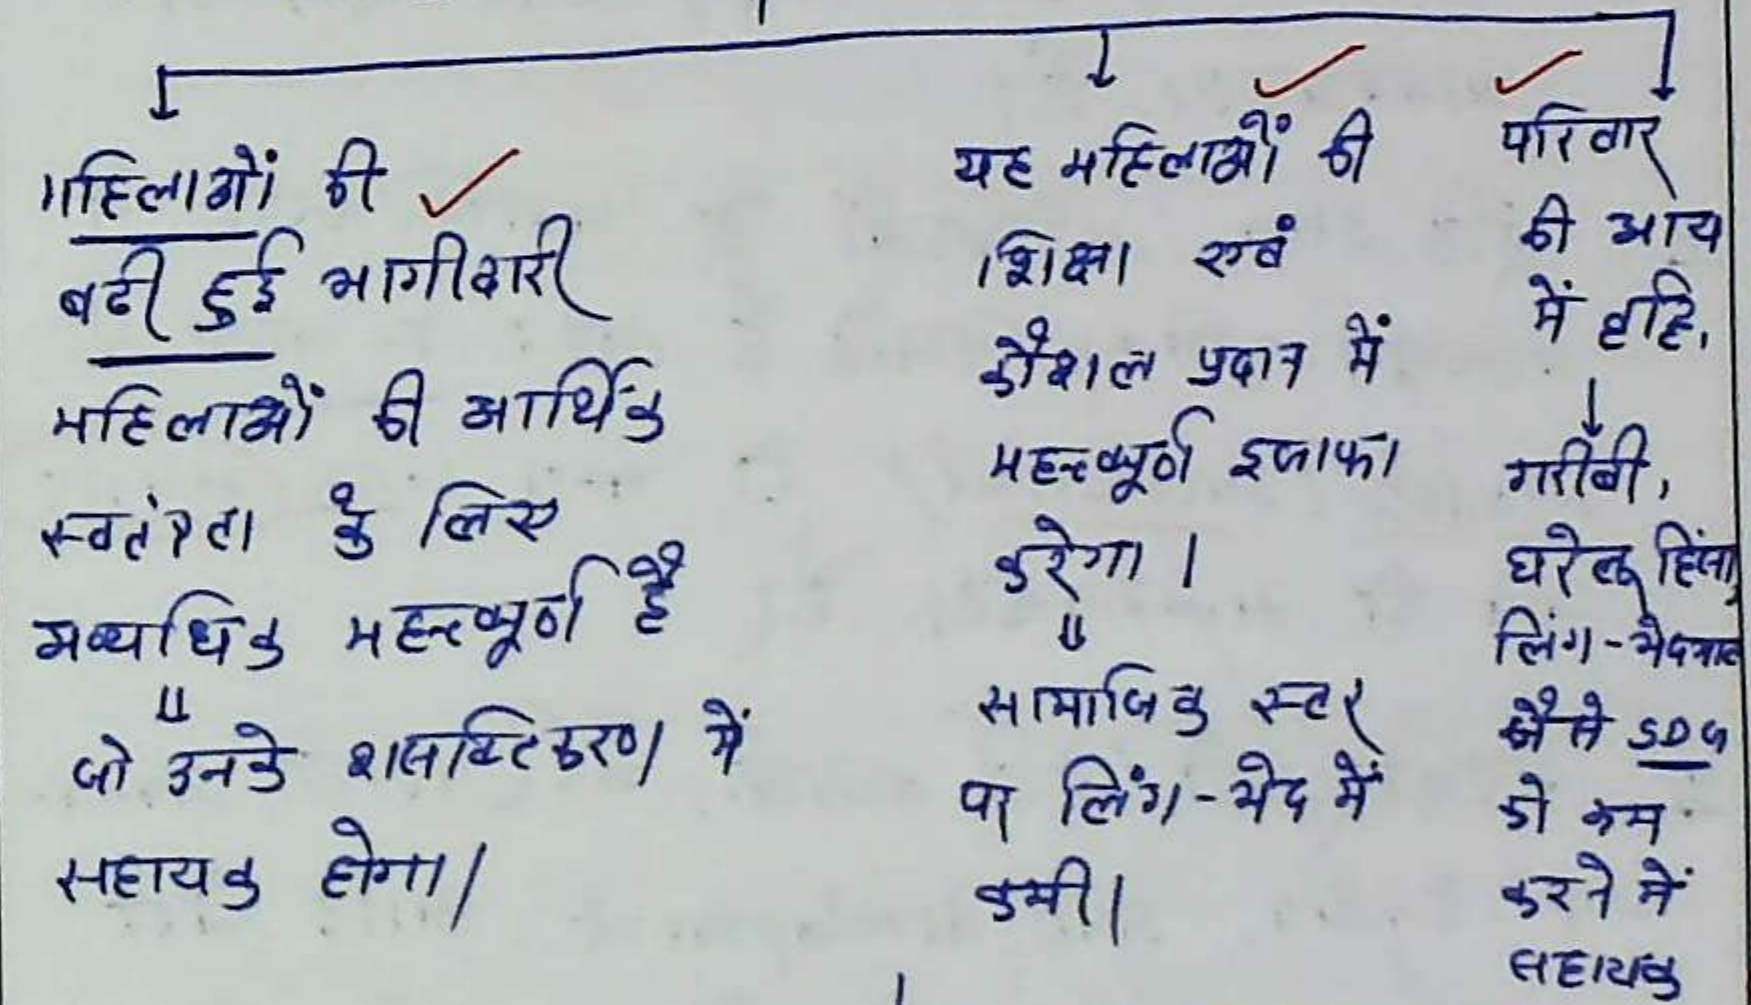 महिलाओं की
बढी हुई भागीदारी
महिलाओं की आर्थिक
स्वतंत्रता के लिए
अत्यधिक महत्वपूर्ण है
जो उनके शसक्तिकरण में
सहायक होगा।
यह महिलाओं की
शिक्षा एवं
कौशल प्रदान में
महत्वपूर्ण इजाफा
करेगा।
सामाजिक स्तर
पर लिंग-भेद में
कमी।
परिवार
की आय
में वृद्धि,
गरीबी,
घरेलू हिंसा,
लिंग-भेदभाव
जैसे SDG
को कम
करने में
सहायक